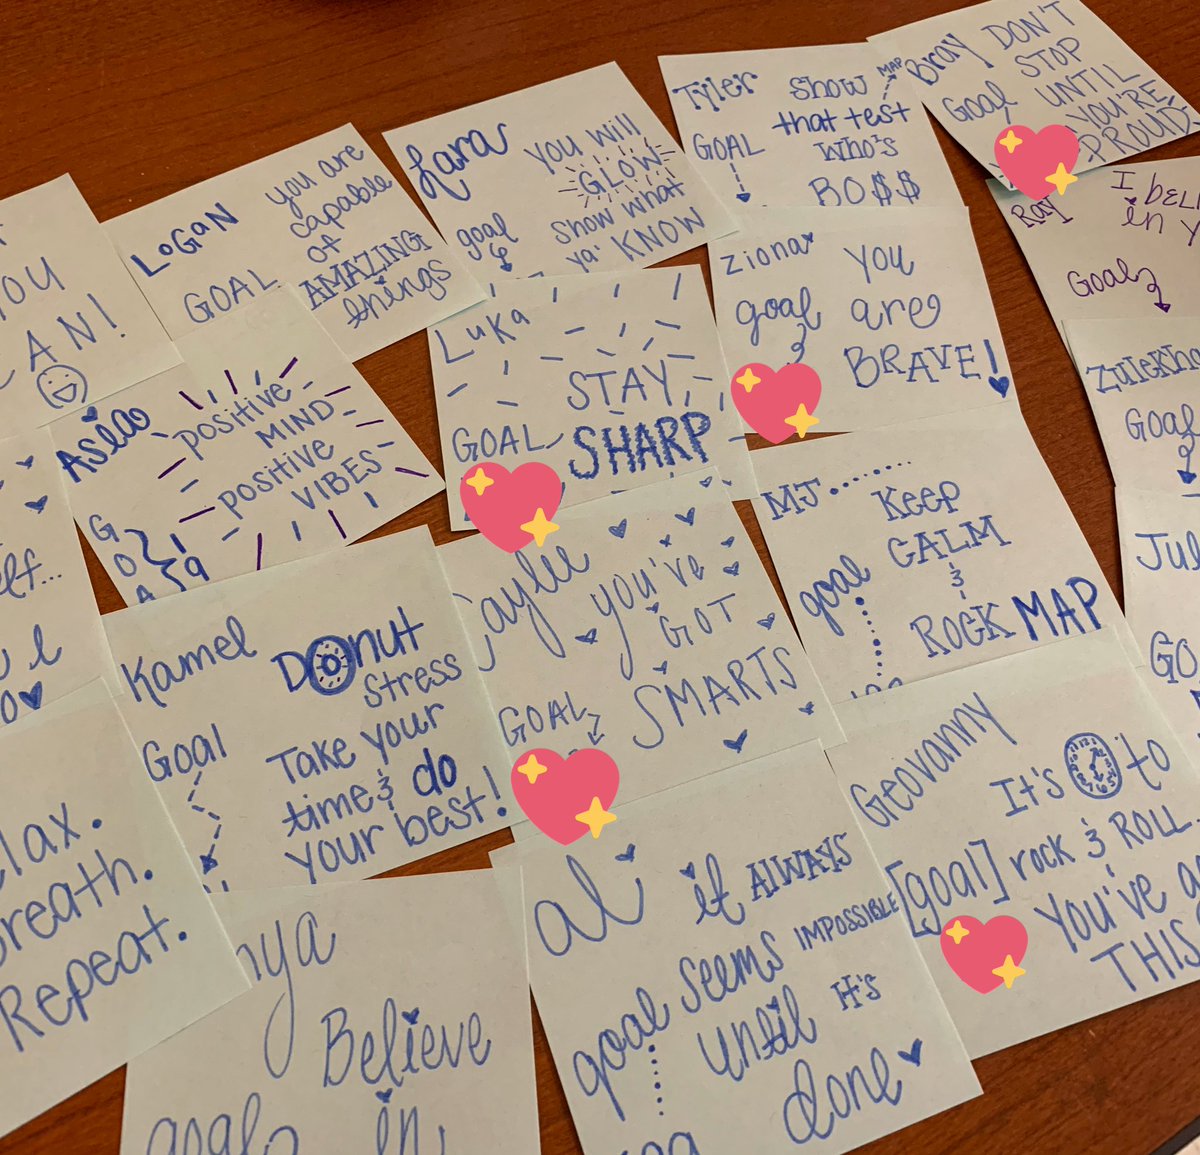 YOU
CAN!
LOGAN
GOAL
you are
capable
of
AMAZING
things
Lara
goal
you will
GLOW
show what
ya' KNOW
Tyler
GOAL
show MAP
that test
WHO'S
BO$$
Bray
Goal
DON'T
STOP
UNTIL
YOU'RE
PROUD
Ray
Goal
I
in
Asia
GOA
positive
MIND
positive
VIBES
LuKa
GOAL
STAY
SHARP
Ziona
goal
You
are
BRAVE!
Goal
Kamel
Goal
DONUT
stress
Take your
time & do
your best!
GOAL
you've
GOT
SMARTS
MJ
goal
Keep
CALM
&
ROCK MAP
Geovanny
[goal]
It's to
rock & ROLL.
You've
THIS
Breath.
Repeat.
goal
Believe
in
al
goal
it ALWAYS
seems IMPOSSIBLE
until it's
done